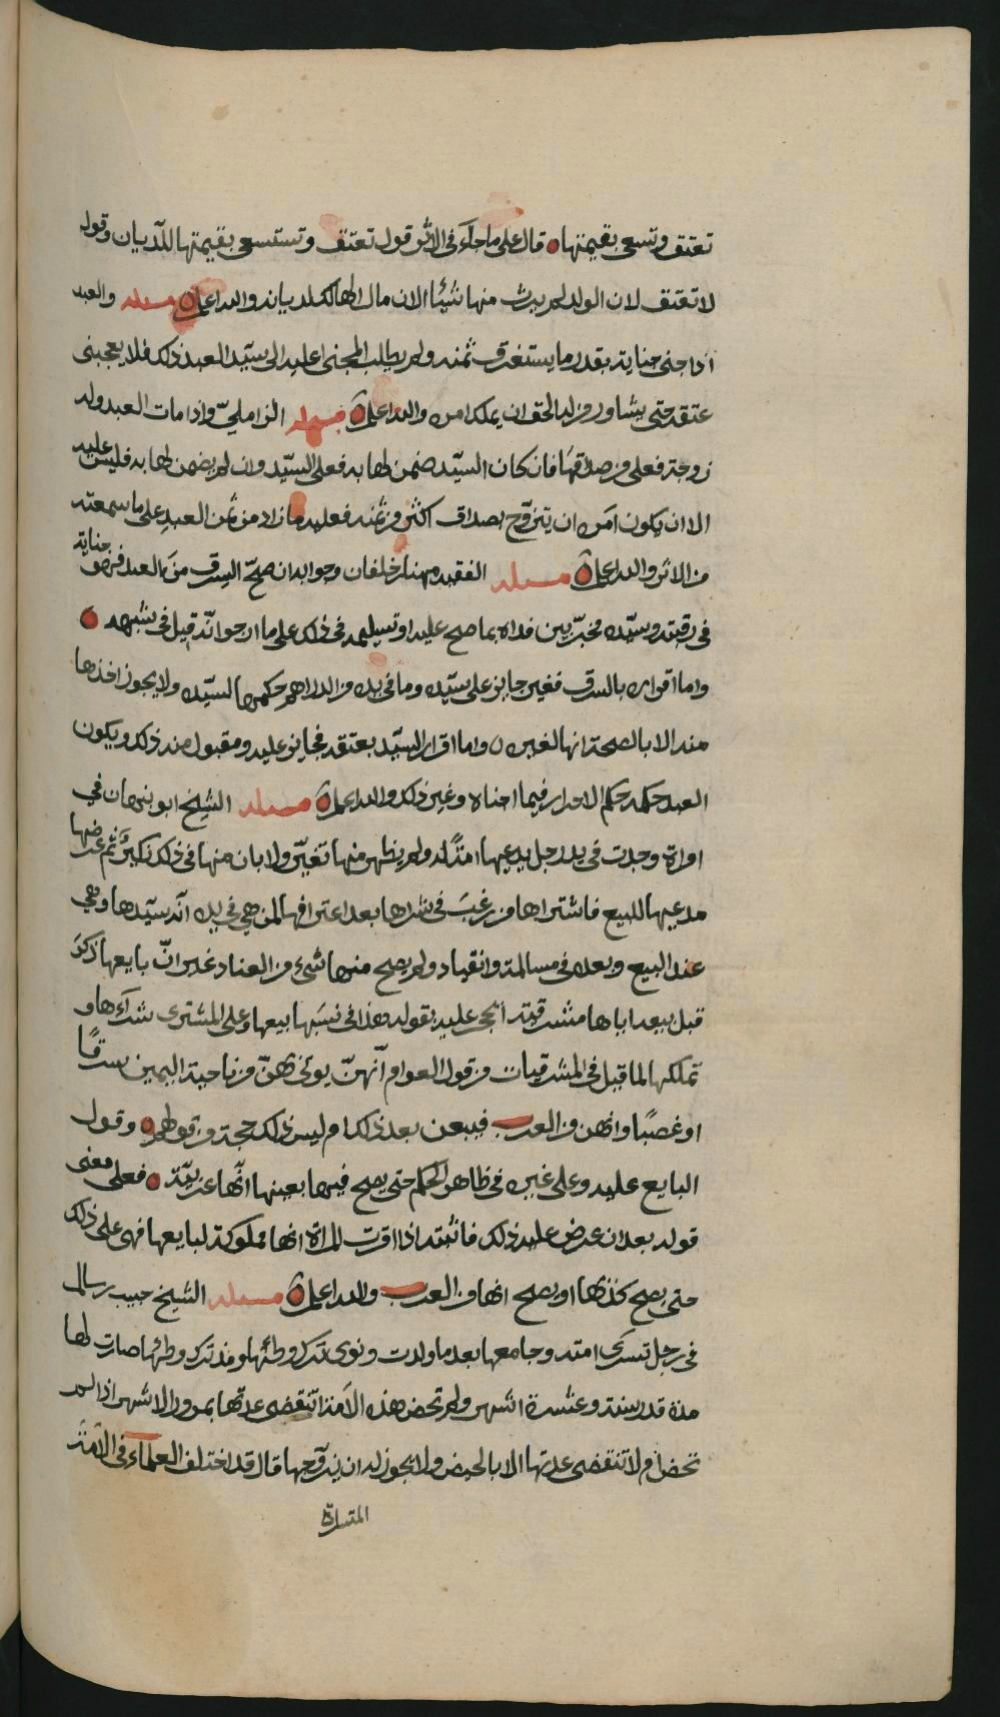 تعتق وتسعى بقيمتها ه قال على ما جآء في الاثر قول تعتق وتستسعى بقيمتها للديان وقول
لا تعتق لان الولد لم يرث منها شيئا الا ان مال الهالك لديانه والله اعلم ه مسئله والعبد
اذا جنى جناية بقدر ما يستغرق ثمنه ولم يطلب المجنى عليه الى سيّد العبد ذلك فلا يعجبنى
عتقه حتى يشاور من له الحق ان يملك امره والله اعلم ه مسئله الزامليّ واذا مات العبد وله
زوجة فعلى من صداقها فان كان السيّد ضمن لها به فعلى السيّد وان لم يضمن لها به فليس عليه
الا ان يكون امره ان يتزوّج بصداق اكثر من ثمنه فعليه ما زاد من ثمن العبد على ما سمعته
من الاثر والله اعلم ه مسئله الفقيه مهنا بن خلفان وجوابه ان صحّ السرق من العبد فهو جناية
في رقبته وسيّده مخيّر بين فداه بما صح عليه او تسليمه في ذلك على ما ارجو انّه قيل في شبهه ه
واما اقراره بالسرق فغير جايز على سيّده وما في يده من الدراهم حكمها لسيّده ولا يجوز اخذها
منه الا بالصحة انها لغيره ه واما اقرار السيّد بعتقه فجايز عليه ومقبول منه ذلك ويكون
العبد حكمه حكم الاحرار فيما اجناه وغير ذلك والله اعلم ه مسئله الشيخ ابو نبهان في
امراة وجدت في يد رجل يدعيها امةً له ولم يظهر منها تغيّر ولا بان منها في ذلك نكيرَ ثم عرضها
مدعيها للبيع فاشتراها من رغبَ في شراها بعد اعترافها لمن هي في يده انّه سيّدها وهي
عند البيع وبعده في مسالمة وانقياد ولم يصح منها شيء من العناد غير انّ بايعها ذكرَ
قبل بيعه اياها مشرقية ايحجر عليه بقوله هذا في نسَبها بيعها وعلى المشترى شرآءها و
تملكها لما قيل في المشرقيات من قول العوام انّهنّ يوتى بهنّ من ناحية اليمين سرقًا
او غصبًا وانهن من العرب فيبعن بعد ذلك ام ليس ذلك حجة من قولهم ه وقول
البايع عليه وعلى غيره في ظاهر الحكم حتى يصح فيها بعينها انّها عربيّة ه فعلى معنى
قوله بعد ان عرض عليه ذلك فاثبته اذا اقرت المراة انها مملوكة لبايعها فهي على ذلك
حتى يصح كذبها او يصح انها من العرب والله اعلم ه مسئله الشيخ حبيب بن سالم
في رجل تسرى امته وجامعها بعد ما ولدت ونوى ترك وطئها ومنذ ترك وطئها صارت لها
مدة قدر سنة وعشرة اشهر ولم تحض هذه الامة اتنقضى عدتها بمرور الاشهر اذا لم
تحض ام لا تنقضى عدتها الا بالحيض ولا يجوز له ان يزوّجها قال قد اختلف العلماء في الامة
المتسراة